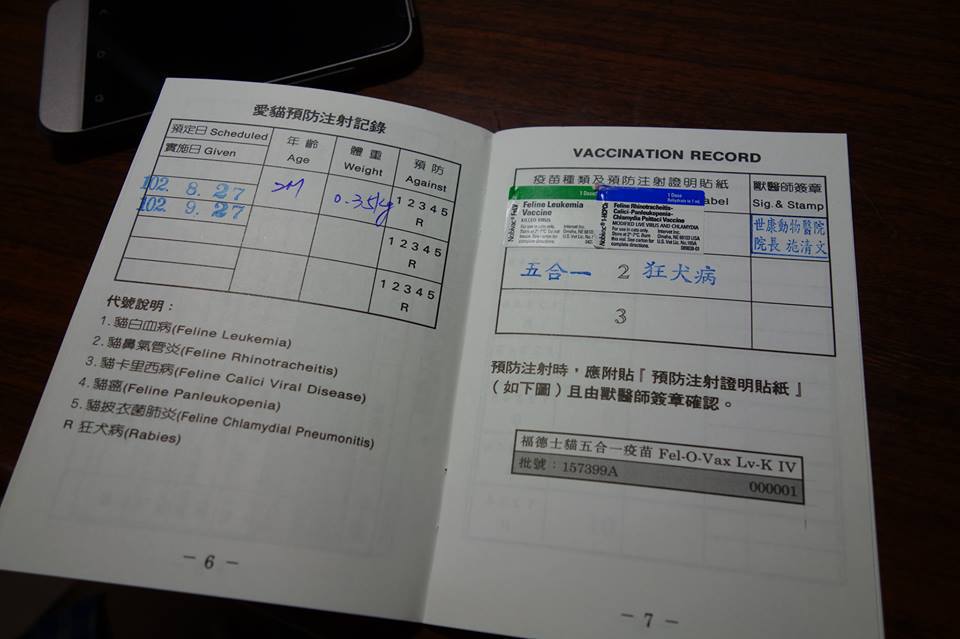 愛貓預防注射記錄
預定日 Scheduled
實施日 Given
年齡
Age
體重
Weight
預防
Against
102. 8. 27
2M
0.35kg
1 2 3 4 5
R
102. 9. 27
1 2 3 4 5
R
1 2 3 4 5
R
代號說明：
1. 貓白血病(Feline Leukemia)
2. 貓鼻氣管炎(Feline Rhinotracheitis)
3. 貓卡里西病(Feline Calici Viral Disease)
4. 貓瘟(Feline Panleukopenia)
5. 貓披衣菌肺炎(Feline Chlamydial Pneumonitis)
R 狂犬病(Rabies)
－ 6 －
VACCINATION RECORD
疫苗種類及預防注射證明貼紙
獸醫師簽章
Sig.& Stamp
1 Dose
Feline Leukemia
Vaccine
KILLED VIRUS
For use in cats only.
Nobivac
1 Dose
Feline Rhinotracheitis-
Calici-Panleukopenia-
Chlamydia Psittaci Vaccine
MODIFIED LIVE VIRUS AND CHLAMYDIA
For use in cats only.
Intervet Inc.
Omaha, NE 68103 USA
U.S. Vet Lic. No. 165A
Nobivac
世康動物醫院
院長 施清文
五合一 2 狂犬病
3
預防注射時，應附貼『預防注射證明貼紙』
（如下圖）且由獸醫師簽章確認。
福德士貓五合一疫苗 Fel-O-Vax Lv-K IV
批號：157399A
000001
－ 7 －